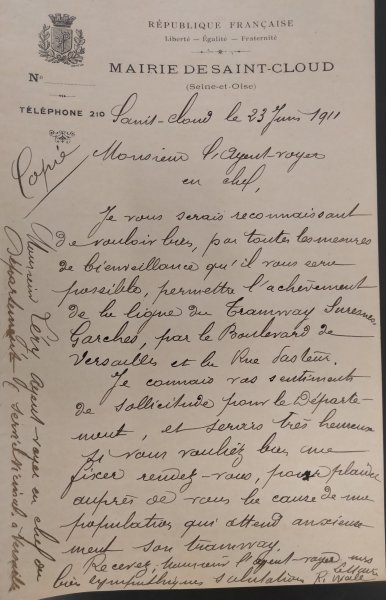 RÉPUBLIQUE FRANÇAISE
Liberté — Égalité — Fraternité
MAIRIE DE SAINT-CLOUD
(Seine-et-Oise)
No
TÉLÉPHONE 210
Saint-Cloud le 23 Juin 1911
Copie
Monsieur l'Agent-voyer
en chef,
Je vous serais reconnaissant
de vouloir bien, par toutes les mesures
de bienveillance qu'il vous sera
possible, permettre l'achèvement
de la ligne du Tramway Suresnes
Garches, par le Boulevard de
Versailles et la Rue Pasteur.
Je connais vos sentiments
de sollicitude pour le Départe-
ment, et serais très heureux
si vous vouliez bien me
fixer rendez-vous, pour plaider
auprès de vous la cause de une
population qui attend anxieuse
ment son tramway.
Recevez, monsieur l'agent-voyer, mes
bien sympathiques salutations
Monsieur Agent-voyer en chef du
Département, service vicinal, à Versailles